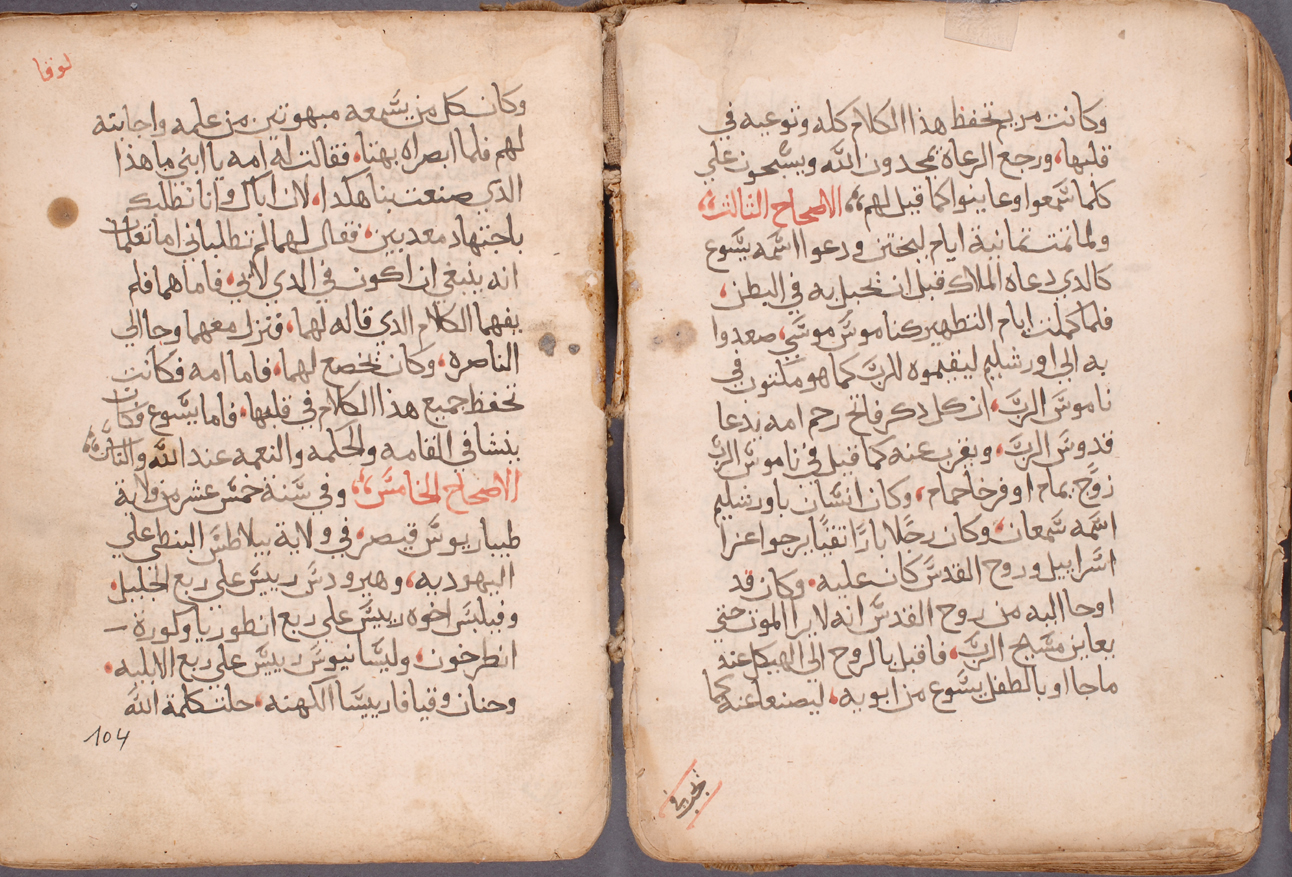 وكانت مريم تحفظ هذا الكلام كله وتوعيه في
قلبها، ورجع الرعاه يمجدون الله ويسبحون علي
كلما سمعوا وعاينوا كما قيل لهم،، الاصحاح الثالث،،
ولما تمت ثمانية ايام ليختن ودعوا اسمه يسوع
كالدي دعاه الملاك قبل ان تحبل به في البطن،
فلما كملت ايام التطهير كناموس موسي، صعدوا
به الي اورشليم ليقيموه للرب كما هو مكتوب في
ناموس الرب، ان كل دكر فاتح رحم امه يدعا
قدوس الرب، ويقرب عنه كما قيل في ناموس الرب
زوج يمام او فرخا حمام، وكان انسان باورشليم
اسمه سمعان، وكان رجلا بارا تقيا يرجوا عزا
اسراييل وروح القدس كان عليه، وكان قد
اوحا اليه من روح القدس انه لا يرا الموت حتي
يعاين مسيح الرب، فاقبل بالروح الي الهيكل عند
ما جااو بالطفل يسوع من ابويه، ليصنعا عنه كما
لوقا
وكان كل من يسمعه مبهوتين من علمه واجابته
لهم فلما ابصراه بهتا، فقالت له امه يا ابني ما هذا
الذي صنعت بنا هكدا، لان اباك وانا نطلبك
باجتهاد معدبين، فقال لهما لم تطلباني اما تعلمان
انه ينبغي ان اكون في الدي لابي، فاما هما فلم
يفهما الكلام الدي قاله لهما، فنزل معهما وجا الي
الناصره، وكان يخضع لهما، فاما امه فكانت
تحفظ جميع هذا الكلام في قلبها، فاما يسوع فكان
ينشا في القامه والحكمه والنعمه عند الله والناس،،
الاصحاح الخامس،، وفي سنة خمس عشر من ولاية
طيباريوس قيصر، في ولاية بيلاطس البنطي علي
اليهوديه، وهيرودس رييس علي ربع الجليل،
وفيلبس اخوه رييس علي ربع انطوريا وكورة
انطرخون، وليسانيوس رييس علي ربع الابليه،
وحنان وقيافا رييسا الكهنه، حلت كلمة الله
104